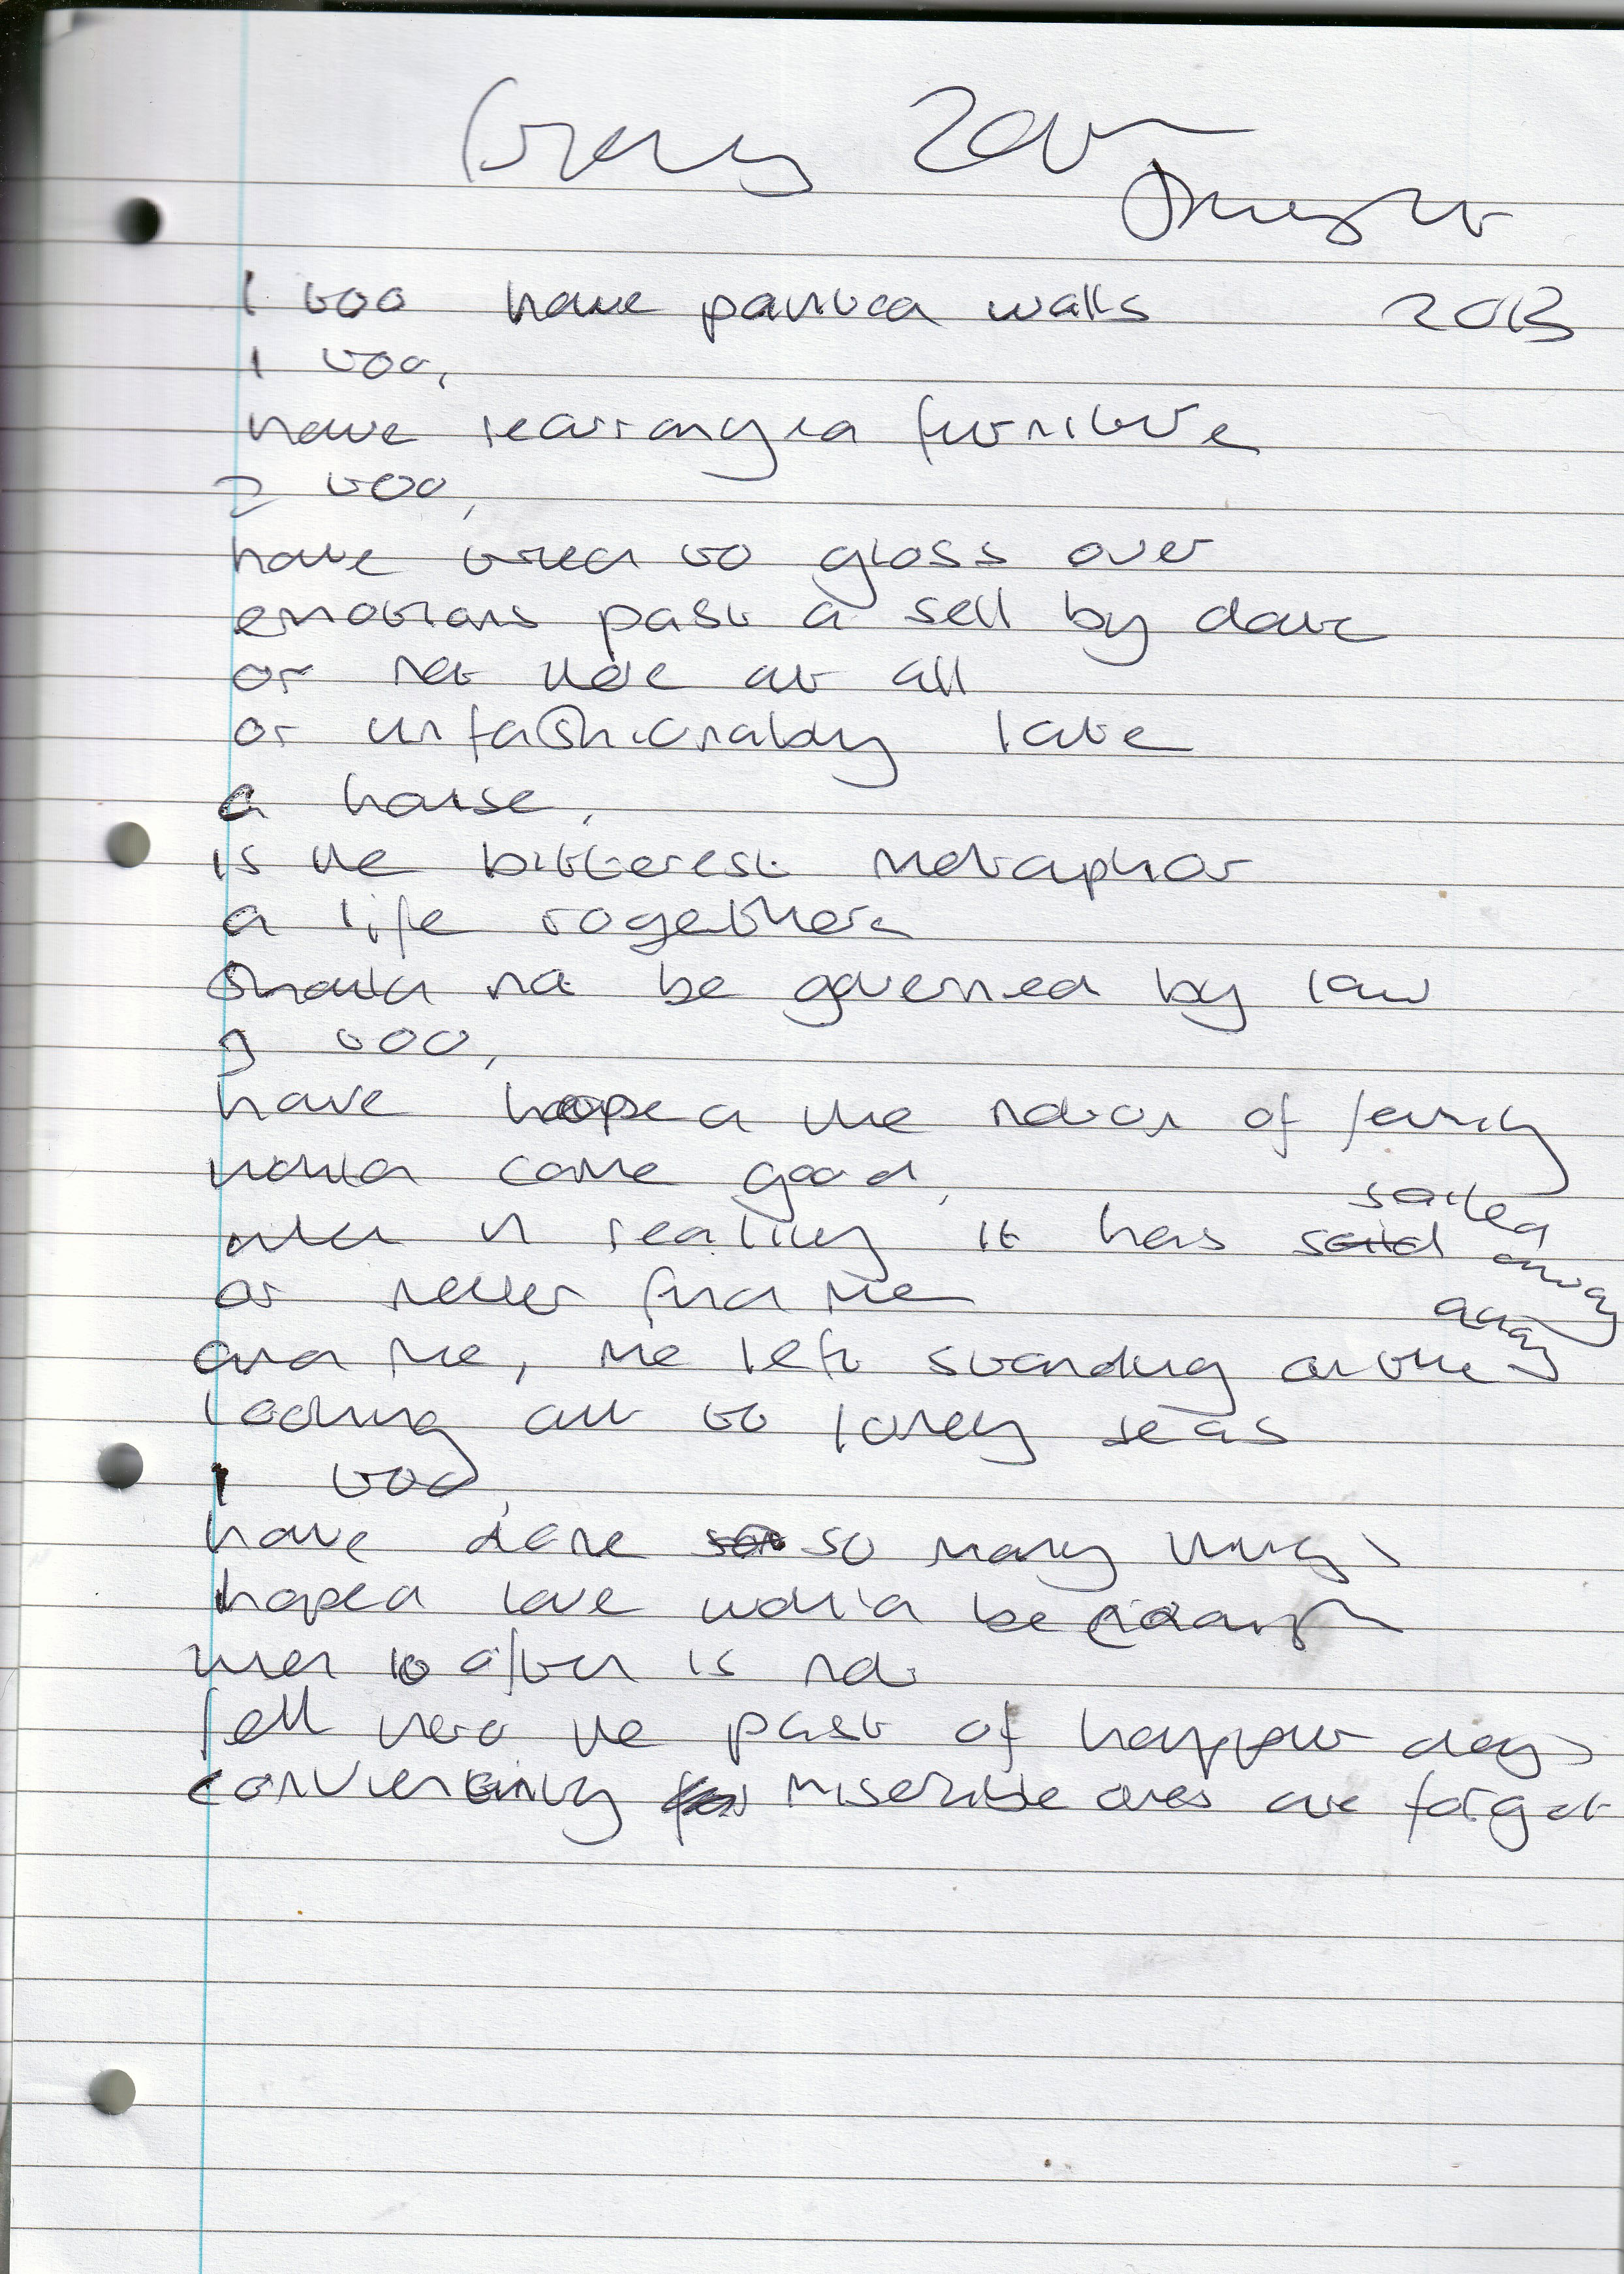 2013
I too have painted walls
I too,
have rearranged furniture
I too,
have tried to gloss over
emotions past a sell by date
or not there at all
or unfashionably late
a house,
is the bitterest metaphor
a life together
should not be governed by law
I too,
have hoped the notion of family
would come good,
when in reality it has said sailed away
or never find me
and me, me left standing on the away
looking out to lonely seas
I too,
have done so many things
hoped love would be enough
when so often is not
fell into the past of happier days
conveniently miserable ones are forgot